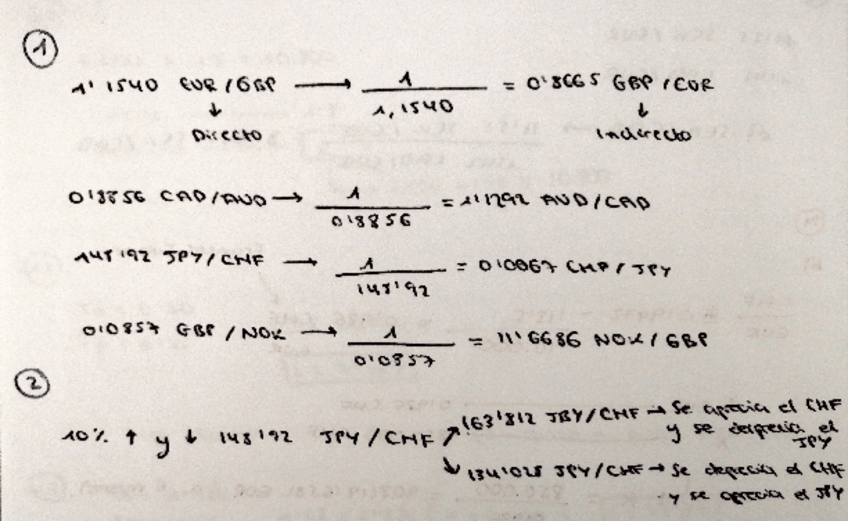 1
1'1540 EUR/GBP → 1 / 1,1540 = 0'8665 GBP/EUR
↓ Directo ↓ Indirecto
0'8856 CAD/AUD → 1 / 0'8856 = 1'1292 AUD/CAD
148'92 JPY/CHF → 1 / 148'92 = 0'0067 CHF/JPY
0'0857 GBP/NOK → 1 / 0'0857 = 11'6686 NOK/GBP
2
10% ↑ y ↓ 148'92 JPY/CHF ↗ 163'812 JPY/CHF → Se aprecia el CHF
y se deprecia el
JPY
↘ 134'028 JPY/CHF → Se deprecia el CHF
y se aprecia el JPY